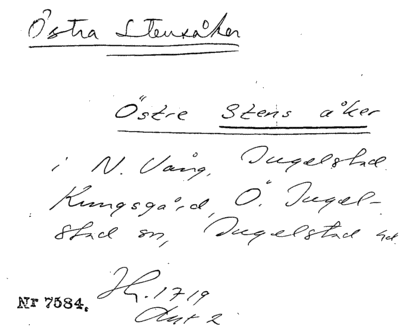 Östra Stensåker
Östre Stens åker
i N. Vång, Ingelstad
Kungsgård, Ö. Ingel-
stad sn, Ingelstad hd
Jb. 1719
Akt 2
Nr 7584.